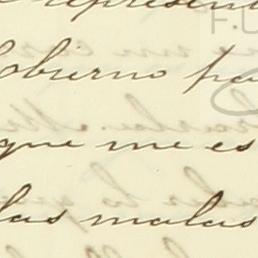 represent
obierno pa
que me es
las malas